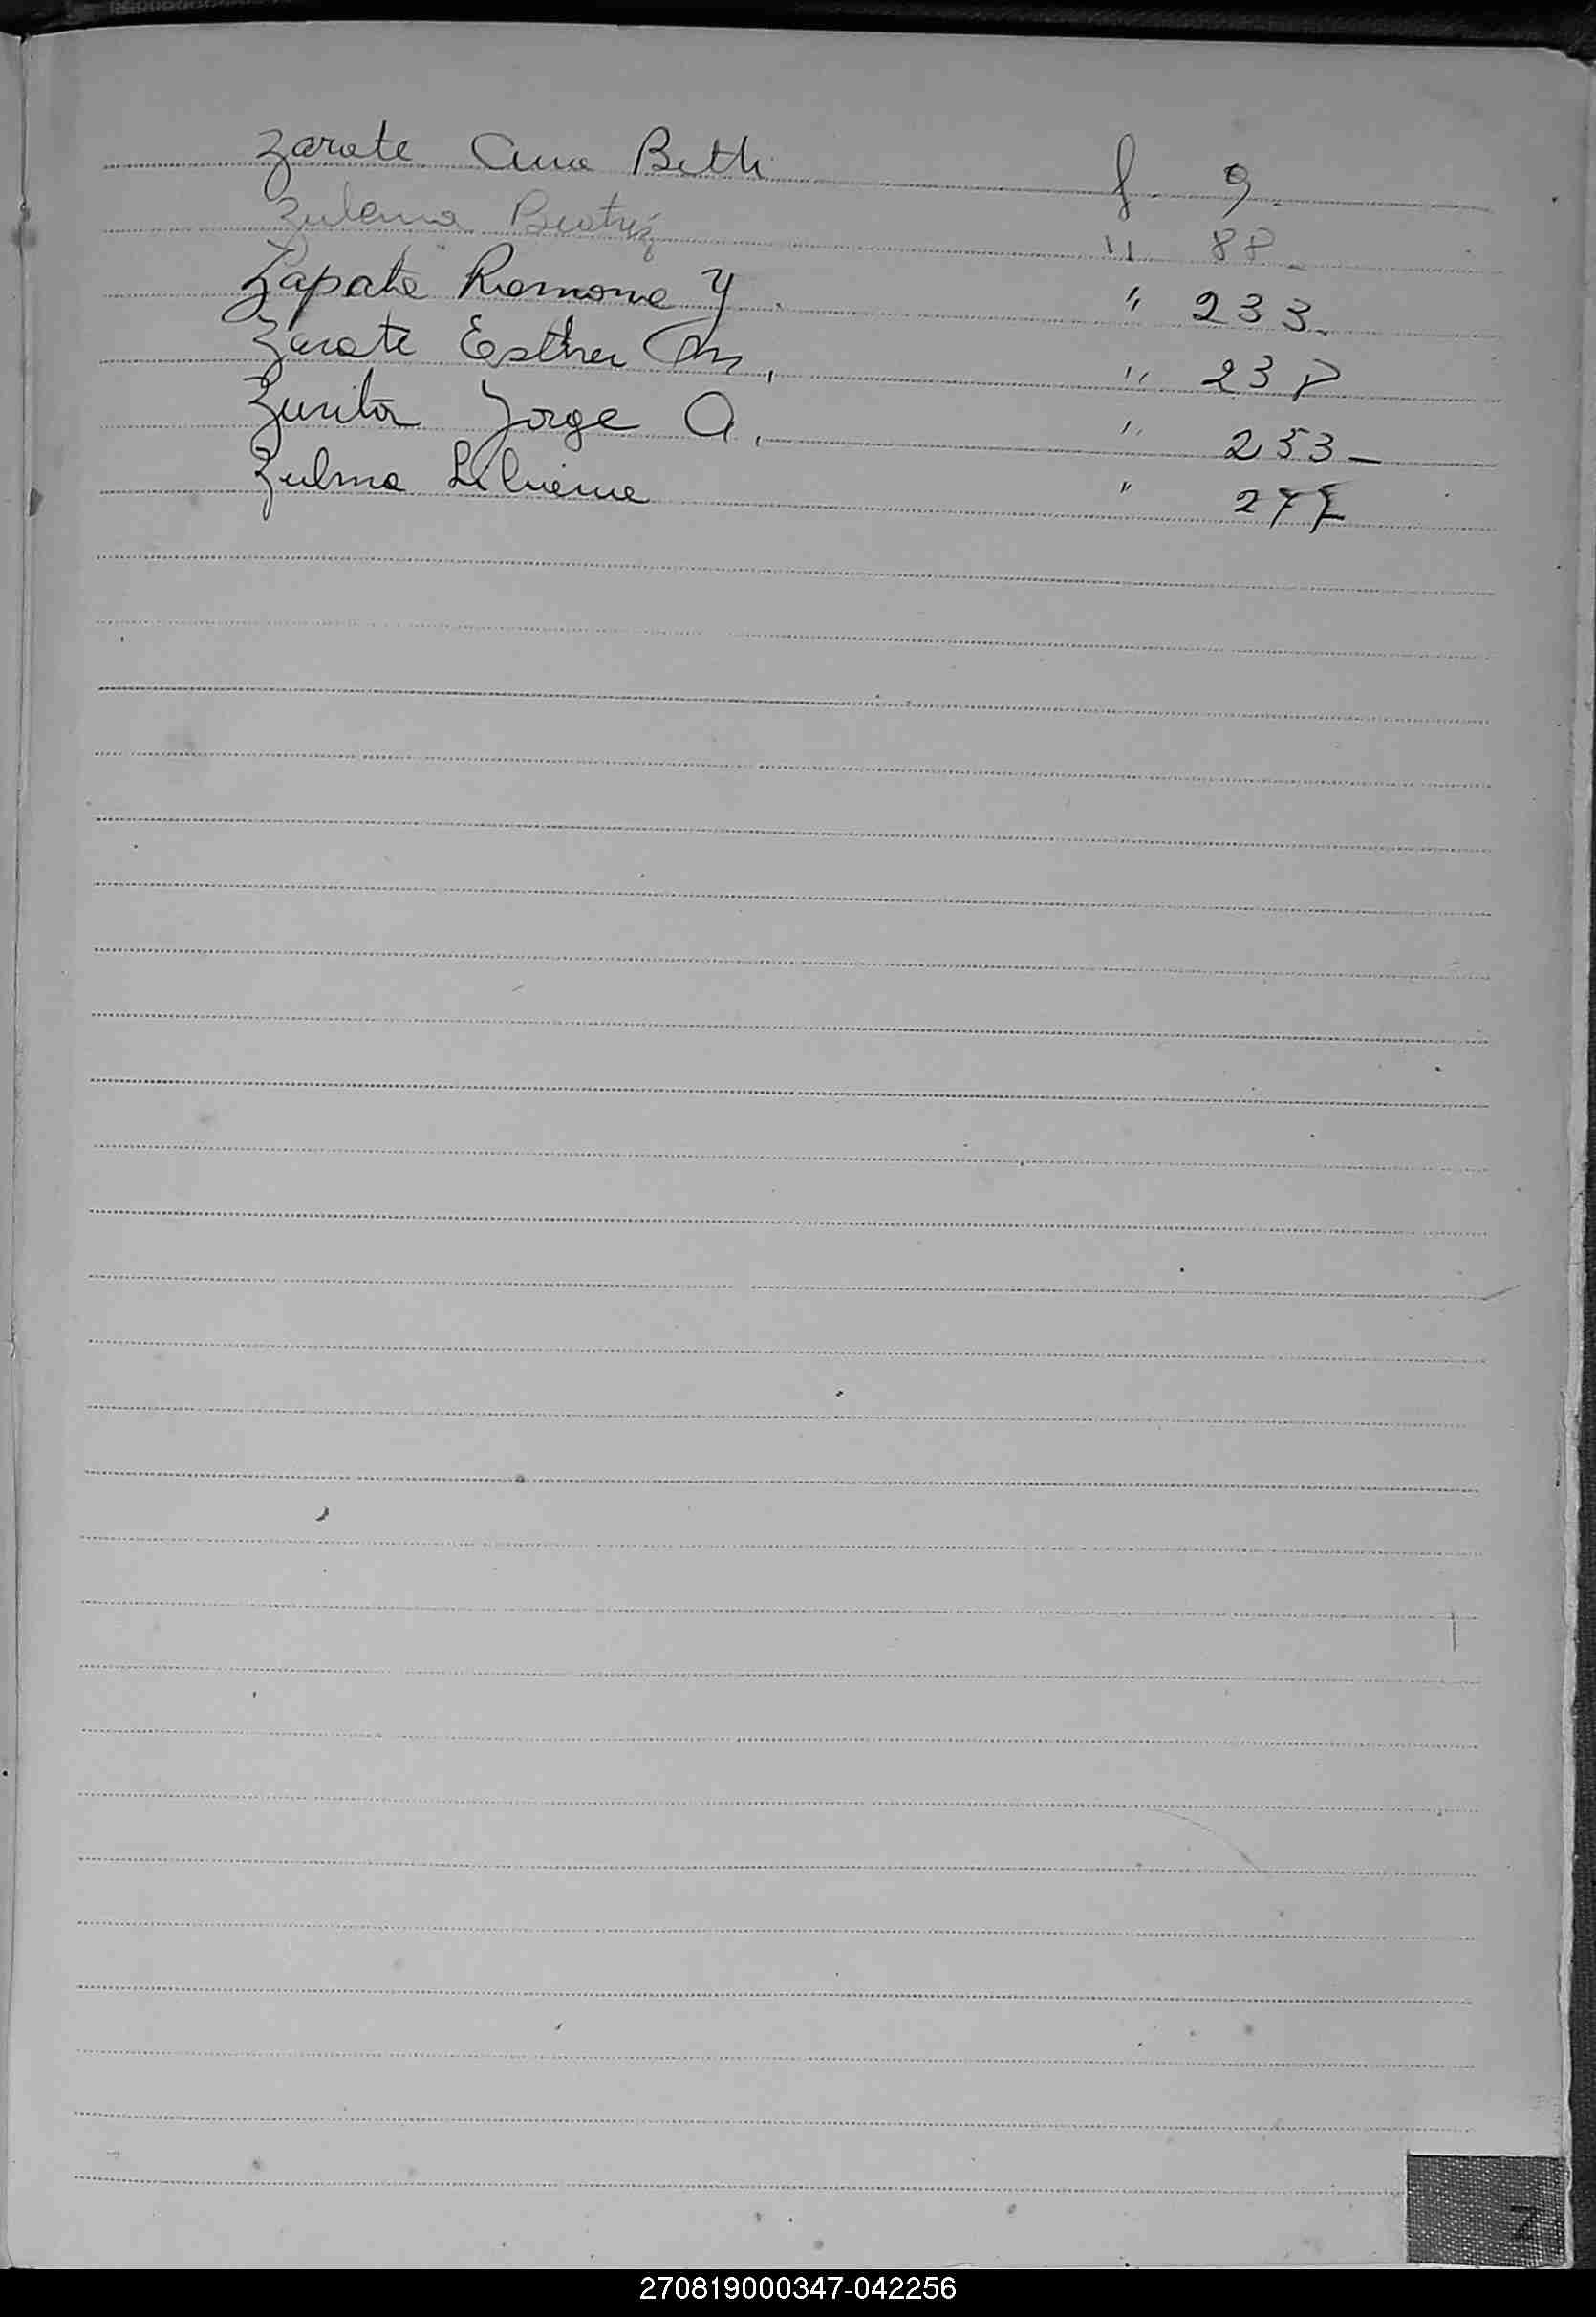 Zarate Ana Beth f. 9.
Zulema Beatriz " 88
Zapata Ramona Y. " 233.
Zarate Esther M. " 238
Zurita Jorge A. " 253-
Zulma Liliana " 277
Z
270819000347-042256